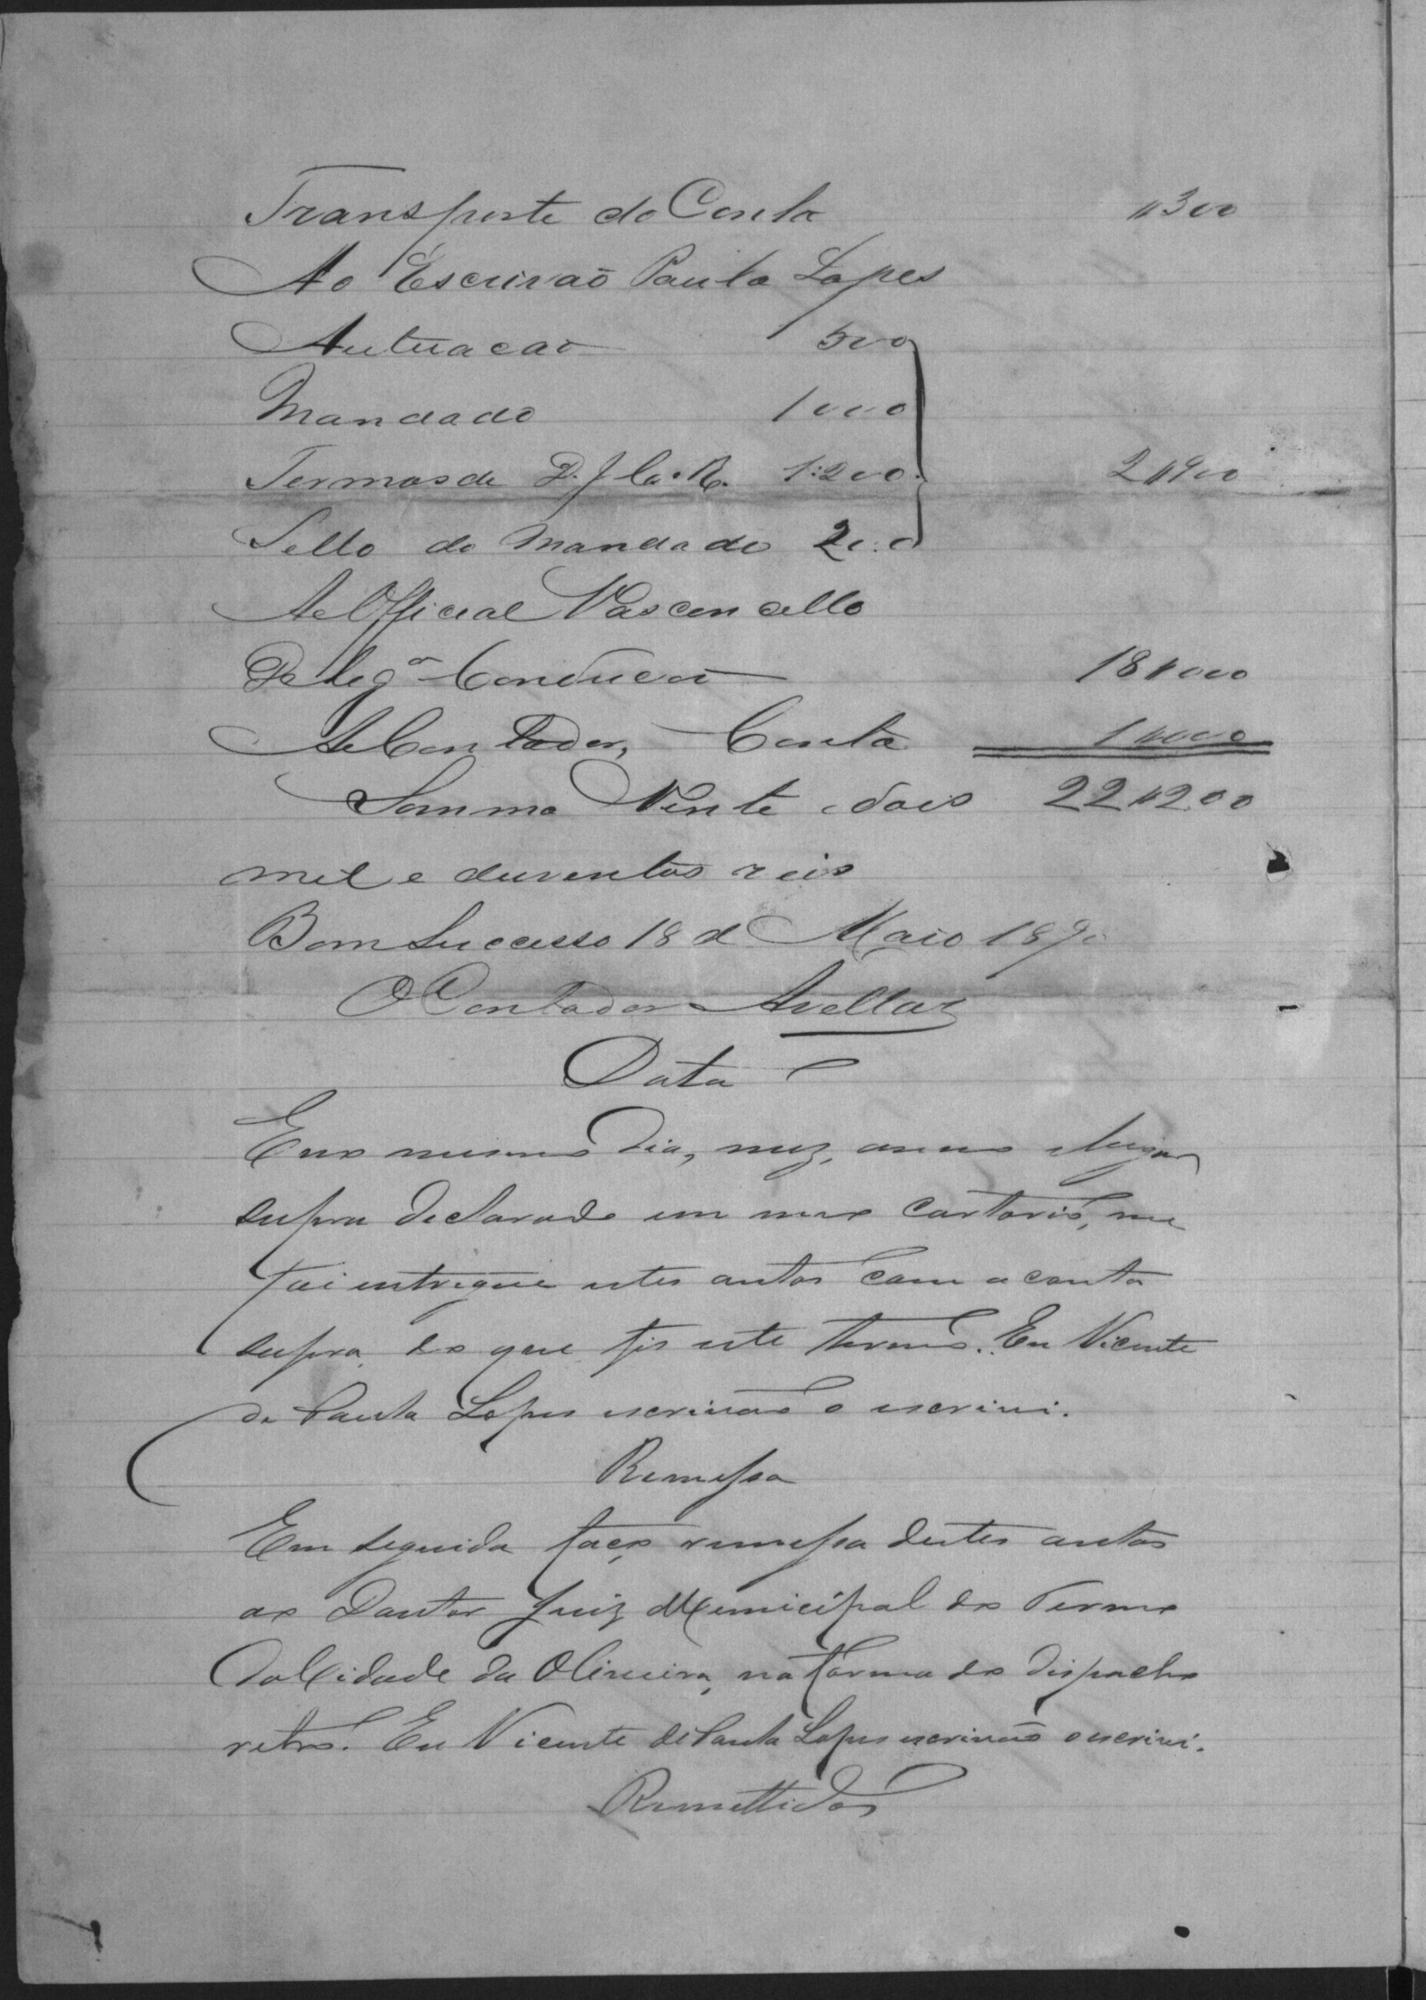 Transporte da Conta $300
Ao Escrivaõ Paula Lopes
Autuacaõ 500
Mandado 1000
Termos de D. J. C. R. 1:200 2$900
Sello do Mandado 200
Ao Official Vasconcello
Delegª Conducaõ 18$000
Ao Contador, Conta 1$000
Somma Vinte e dois 22$200
mil e duzentos reis
Bom Successo 18 d Maio 189
O Contador Avellar
Data
E no mesmo dia, mez, anno e lugar
supra declarado em meu cartorio, me
foi entregue estes autos com a conta
supra, do que fis este termo. Eu Vicente
de Paula Lopes escrivaõ o escrivi.
Remessa
Em seguida faço remessa destes autos
ao Doutor Juiz Municipal do Termo
da Cidade da Oliveira, na forma do dispacho
retro. Eu Vicente de Paula Lopes escrivaõ o escrivi.
Remettidos